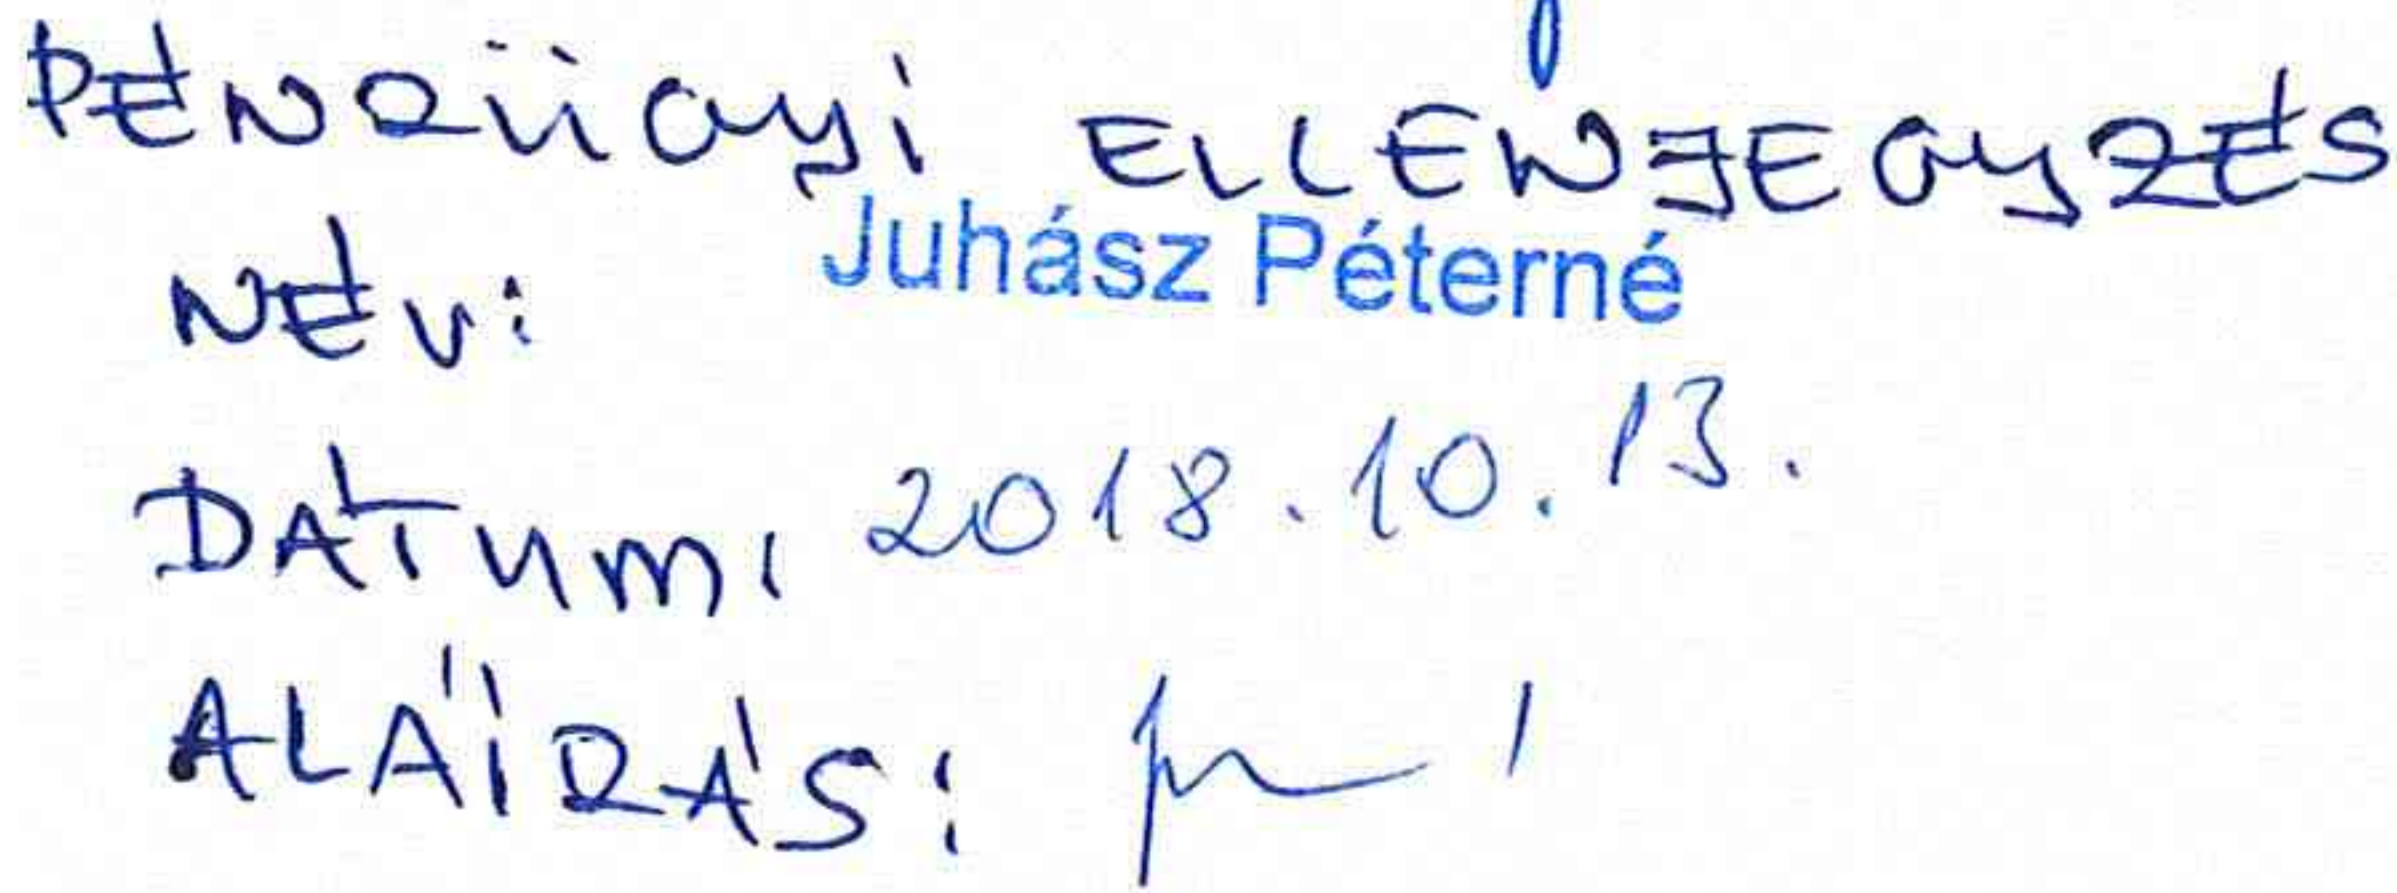 PÉNZÜGYI ELLENJEGYZÉS
NÉV: Juhász Péterné
DÁTUM: 2018.10.13.
ALÁÍRÁS: